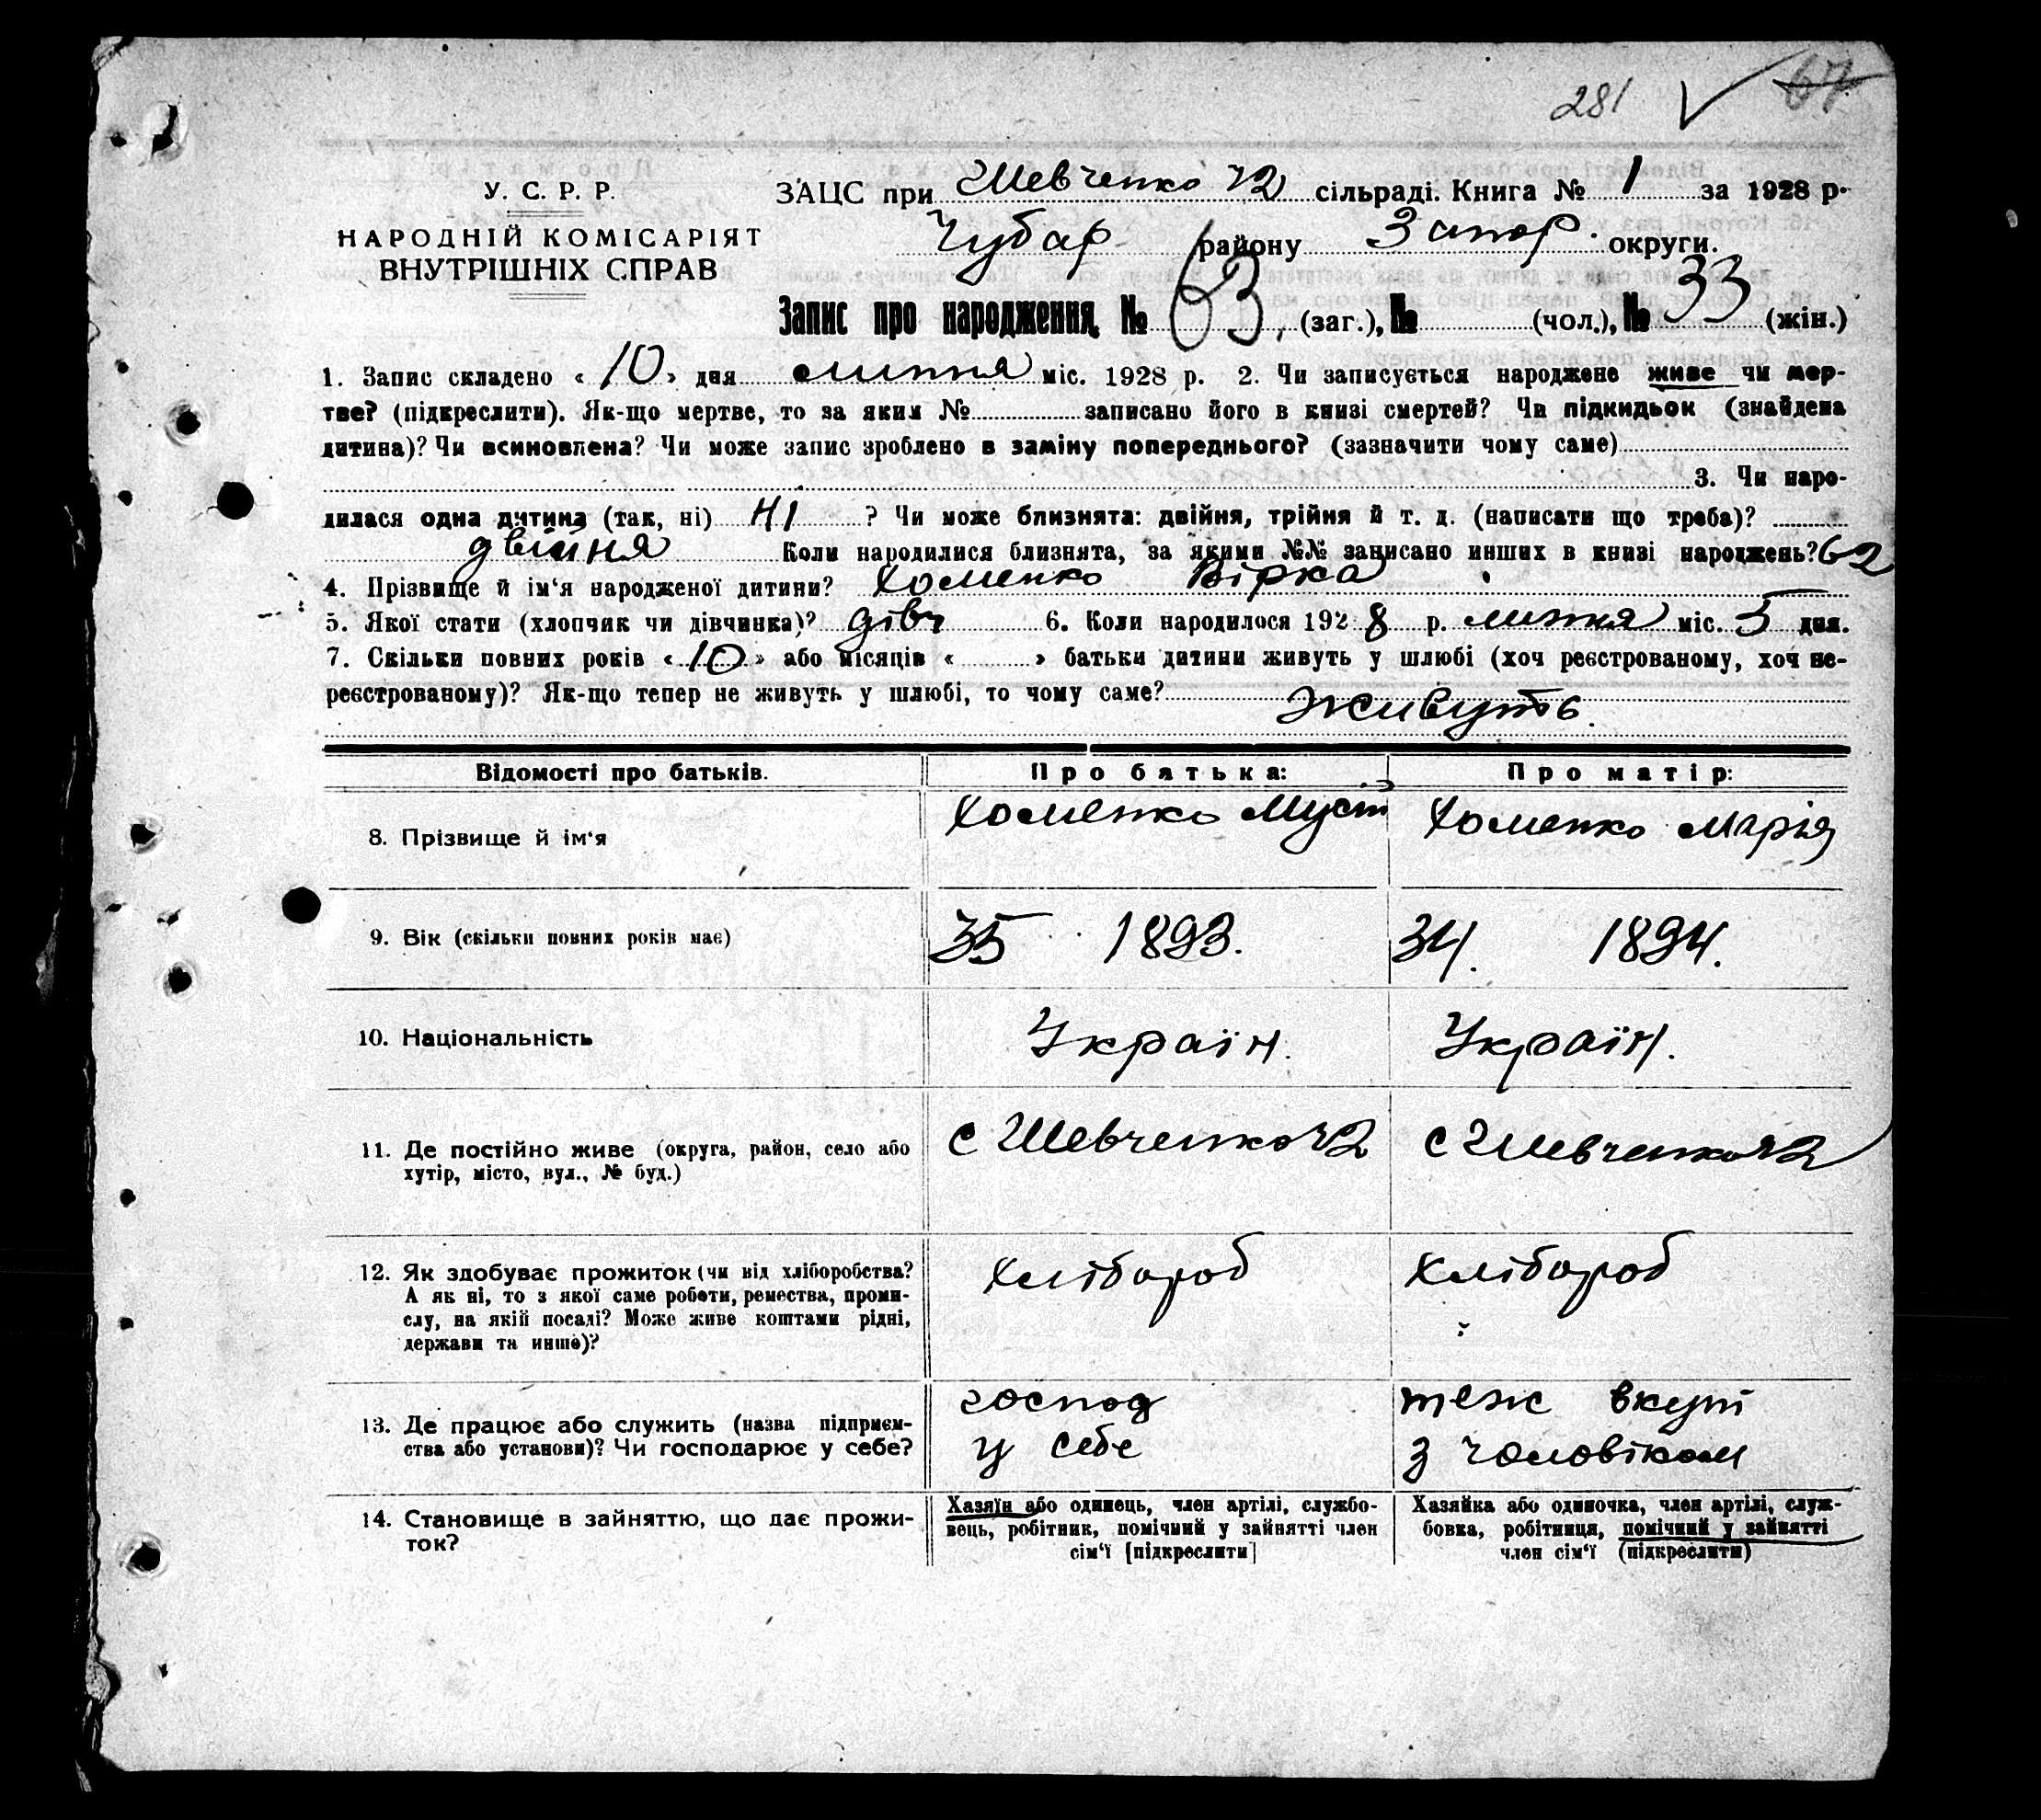 281 67
У. С. Р. Р.
НАРОДНІЙ КОМІСАРІЯТ
ВНУТРІШНІХ СПРАВ
ЗАЦС при Шевченко 2 сільраді. Книга № 1 за 1928 р.
Чубар району Запор. округи.
Запис про народження, № 63. (заг.), № (чол.), № 33 (жін.)
1. Запис складено « 10 » дня липня міс. 1928 р. 2. Чи записується народжене живе чи мер-
тве? (підкреслити). Як-що мертве, то за яким № записано його в книзі смертей? Чи підкидьок (знайдена
дитина)? Чи всиновлена? Чи може запис зроблено в заміну попереднього? (зазначити чому саме)
3. Чи наро-
дилася одна дитина (так, ні) НІ ? Чи може близнята: двійня, трійня й т. д. (написати що треба)?
двійня Коли народилися близнята, за якими №№ записано инших в книзі народжень? 62
4. Прізвище й ім'я народженої дитини? Хоменко Вірка
5. Якої стати (хлопчик чи дівчинка)? дівч 6. Коли народилося 1928 р. липня міс. 5 дня.
7. Скільки повних років « 10 » або місяців « » батьки дитини живуть у шлюбі (хоч реєстрованому, хоч не-
реєстрованому)? Як-що тепер не живуть у шлюбі, то чому саме?
Живуть.
Відомості про батьків. Про батька: Про матір:
8. Прізвище й ім'я Хоменко Хоменко Марія
9. Вік (скільки повних років має) 35 1893. 34. 1894.
10. Національність Україн. Україн.
11. Де постійно живе (округа, район, село або
хутір, місто, вул., № буд.)
с Шевченко 2 с Шевченко 2
12. Як здобуває прожиток (чи від хліборобства?
А як ні, то з якої саме роботи, ремества, проми-
слу, на якій посаді? Може живе коштами рідні,
держави та инше)?
хлібороб хлібороб
13. Де працює або служить (назва підприєм-
ства або установи)? Чи господарює у себе?
господ
у себе
теж вкуті
з чоловіком
14. Становище в зайняттю, що дає прожи-
ток?
Хазяїн або одинець, член артілі, службо-
вець, робітник, помічний у зайнятті член
сім'ї [підкреслити]
Хазяйка або одиночка, член артілі, служ-
бовка, робітниця, помічний у зайнятті
член сім'ї (підкреслити)